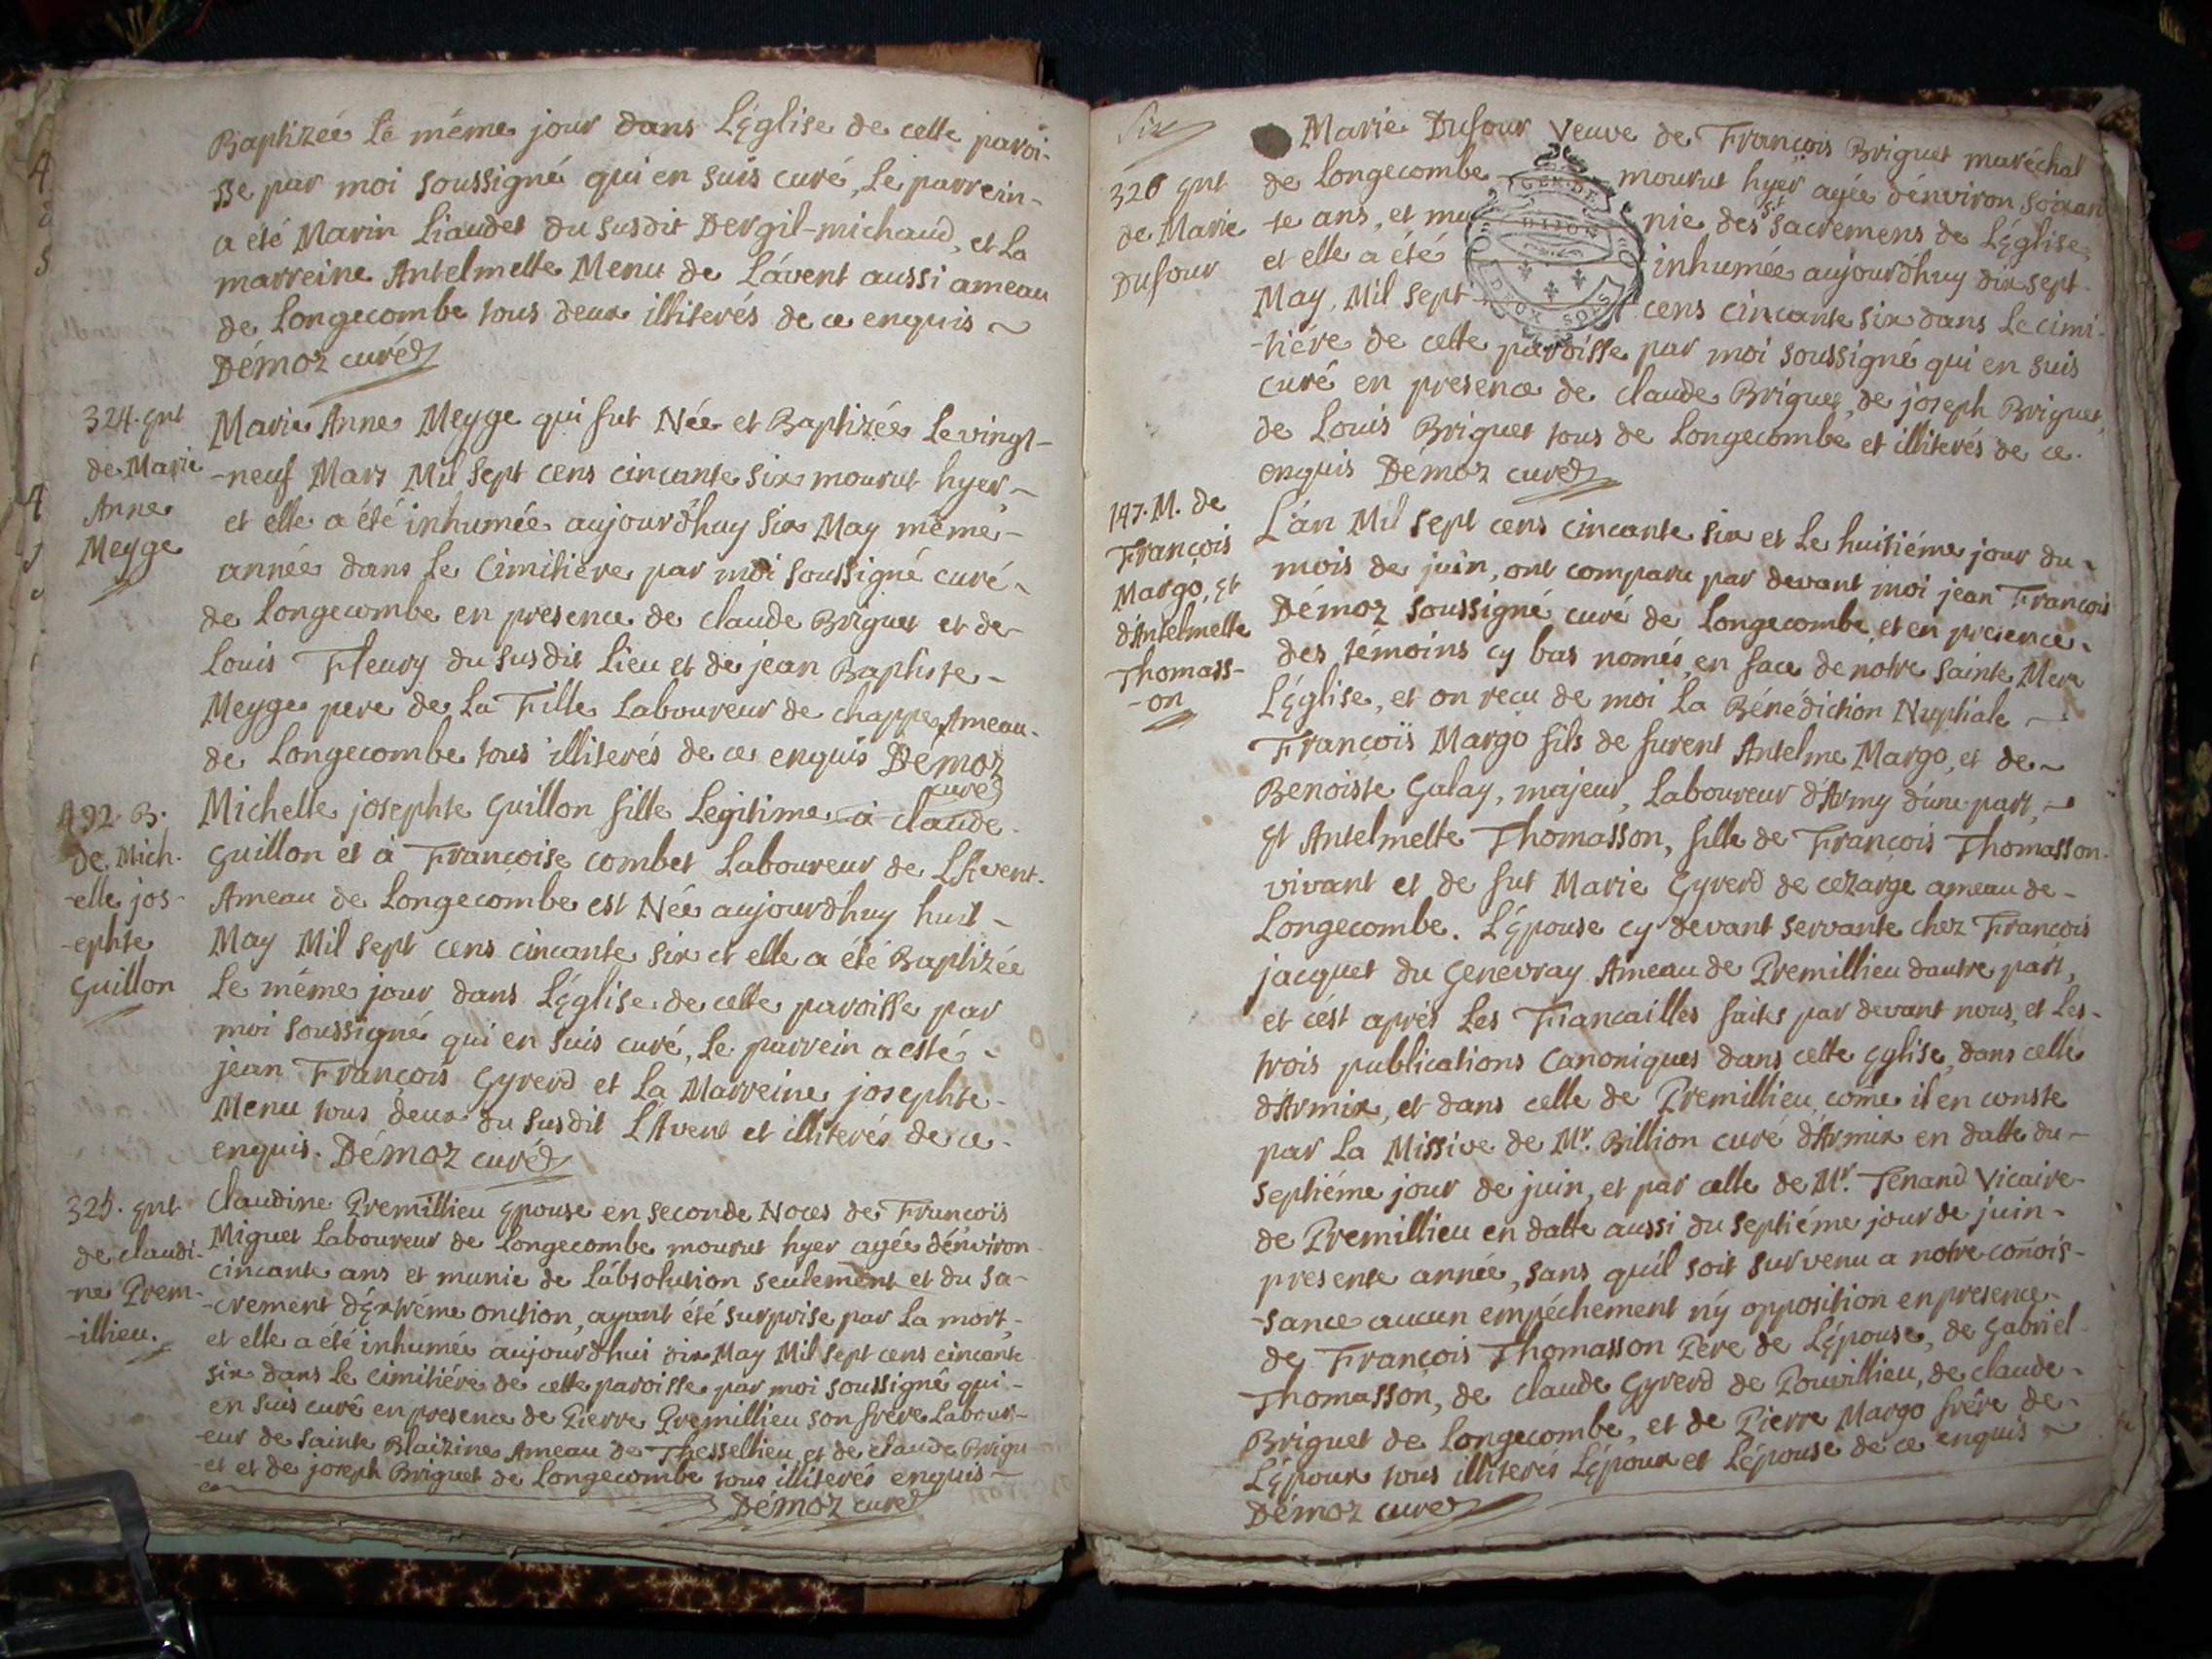 Baptizée le méme jour dans L'Église de cette paroi-
-sse par moi soussigné qui en suis curé, Le parrein-
a été Marin Liaudet du susdit Dergil-michaud, et La
marreine Antelmette Menu de Lávent aussi ameau
de Longecombe tous deux illiterés de ce enquis
Démoz curé
324. Ent
de Marie
Anne
Meyge
Marie Anne Meyge qui fut Née et Baptizée Le vingt-
-neuf Mars Mil sept cens cincante six mourut hyer
et elle a été inhumée aujourdhuy six May méme
année dans Le Cimitiére par moi soussigné curé
de Longecombe en presence de claude Briguet et de
Louis Fleury du susdit Lieu et de jean Baptiste
Meyge pere de La Fille Laboureur de chappe Ameau
de Longecombe tous illiterés de ce enquis Démoz
curé
492. B.
de Mich-
-elle jos-
-ephte
Guillon
Michelle josephte Guillon fille Legitime à claude
Guillon et à Françoise combet Laboureur de LAvent
Ameau de Longecombe est Née aujourdhuy huit
May Mil sept cens cincante six et elle a été Baptizée
Le méme jour dans L'Église de cette paroisse par
moi soussigné qui en suis curé, Le parrein a esté
jean François Gyrerd et La Marreine josephte
Menu tous deux du susdit LAvent et illiterés de ce
enquis. Démoz curé
325. Ent
de claudi-
-ne Prem-
-illieu.
Claudine Premillieu Epouse en seconde Noces de François
Miguet Laboureur de Longecombe mourut hyer agée dénviron
cincante ans et munie de Lábsolution seulement et du sa-
-crement d'Extréme onction, ayant été surprise par La mort,
et elle a été inhumée aujourdhui dix May Mil sept cens cincante
six dans Le cimitiére de cette paroisse par moi soussigné qui
en suis curé en presence de Pierre Premillieu son frére Labour-
-eur de sainte Blaizine Ameau de Thessellieu et de claude Brigu
-et et de joseph Briguet de Longecombe tous illiterés enquis
Démoz curé
Six
326 Ent
de Marie
Dufour
Marie Dufour Veuve de François Briguet maréchal
de Longecombe mourut hyer agée dénviron soixan
te ans, et munie des sts sacremens de L'Église,
et elle a été inhumée aujourdhuy dix sept
May, Mil sept cens cincante six dans Le cimi-
-tiére de cette paroisse par moi soussigné qui en suis
curé en presence de claude Briguet, de joseph Briguet,
de Louis Briguet tous de Longecombe et illiterés de ce
enquis Démoz curé
GEN. DE
DIJON
DEUX SOLS
147. M. de
François
Margo, Et
d'Antelmette
Thomass-
-on
L'án Mil sept cens cincante six et Le huitiéme jour du
mois de juin, ont comparu par devant moi jean François
Démoz soussigné curé de Longecombe, et en presence
des témoins cy bas només, en face de notre sainte Mere
L'Église, et on reçu de moi La Bénédiction Nuptiale
François Margo fils de furent Antelme Margo, et de
Benoiste Galay, majeur, Laboureur d'Army d'une part,
Et Antelmette Thomasson, fille de François Thomasson
vivant et de fut Marie Gyrerd de cezarge ameau de
Longecombe. L'Épouse cy devant servante chez François
jacquet du Genevray Ameau de Premillieu dautre part,
et c'ést aprés Les Fiancailles faites par devant nous, et Les
trois publications Canoniques dans cette Eglise, dans celle
d'Armix, et dans celle de Premillieu, come il en conste
par La Missive de Mr. Billion curé d'Armix en datte du
septiéme jour de juin, et par celle de Mr. Tenand Vicaire
de Premillieu en datte aussi du septiéme jour de juin
presente année, sans quíl soit survenu a notre conois-
-sance aucun empéchement n'y opposition en presence
de François Thomasson Pére de L'épouse, de Gabriel
Thomasson, de claude Gyrerd de Pouvillieu, de claude
Briguet de Longecombe, et de Pierre Margo frére de
L'Époux tous illiterés L'époux et L'épouse de ce enquis
Démoz curé